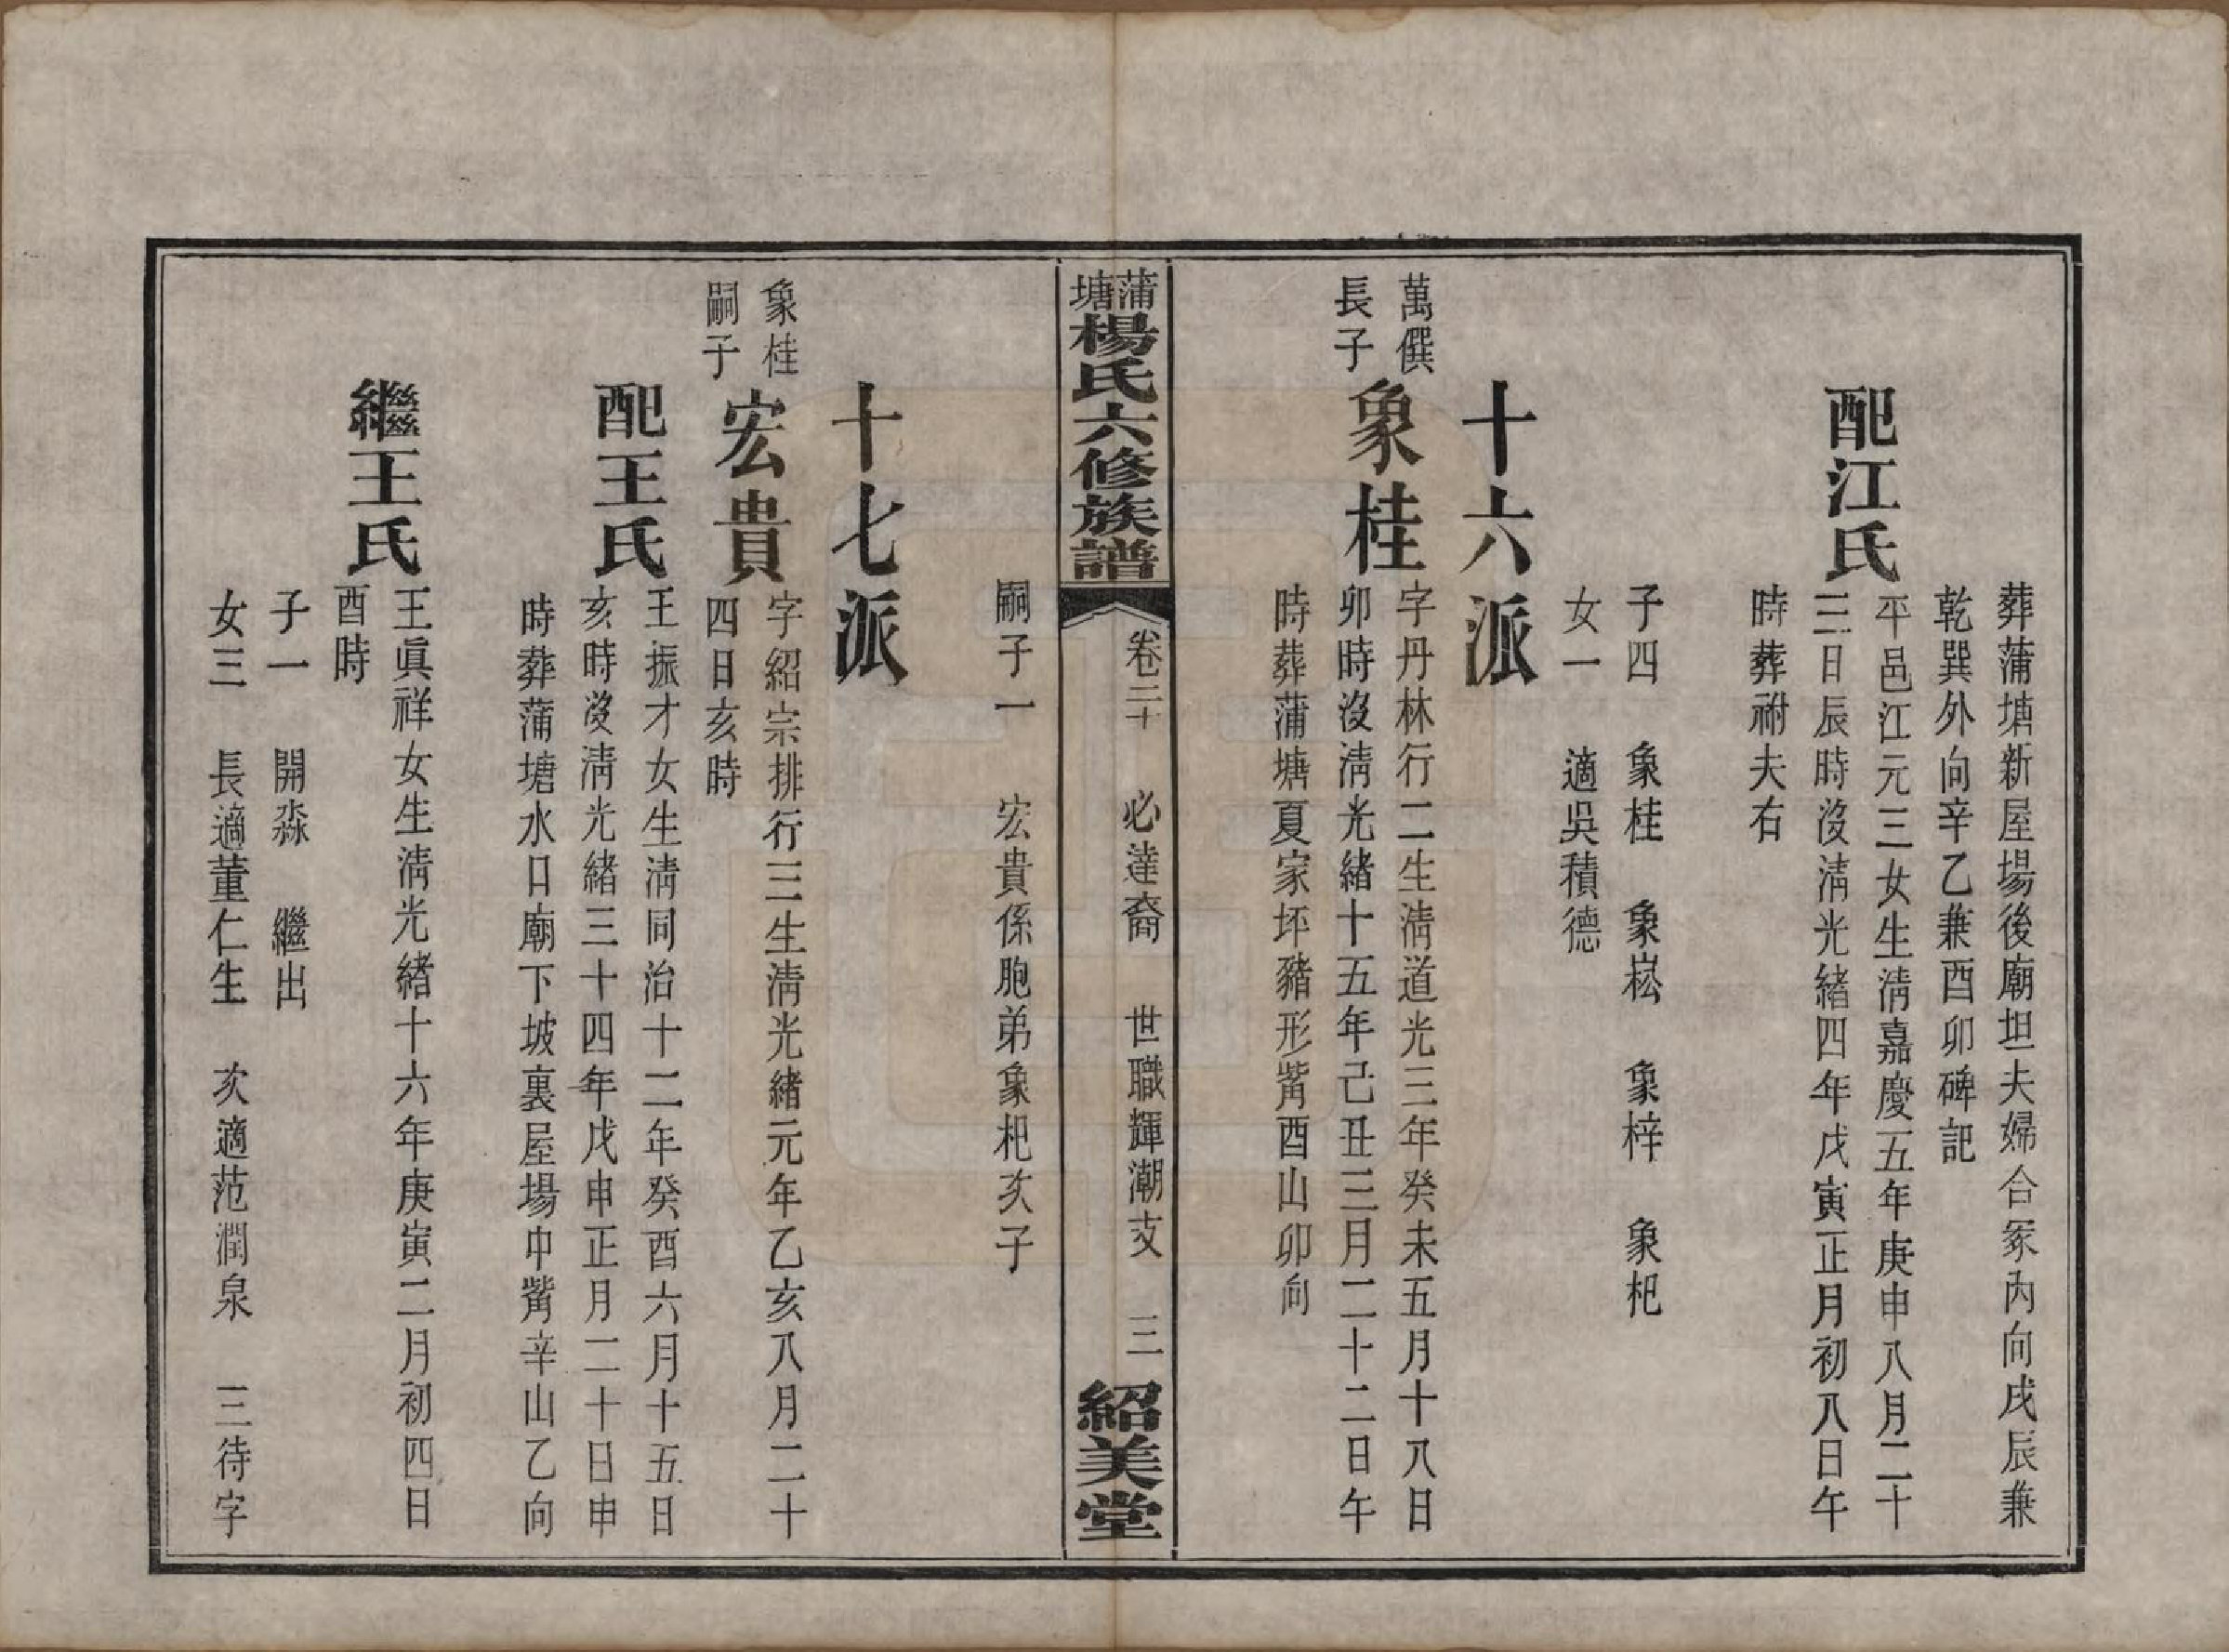 葬蒲塘新屋場後廟坦夫婦合冢內向戌辰兼
乾巽外向辛乙兼酉卯碑記
配江氏
平邑江元三女生淸嘉慶五年庚申八月二十
三日辰時沒淸光緖四年戊寅正月初八日午
時葬祔夫右
子四　象桂　象崧　象梓　象杷
女一　適吳積德
十六派
萬僎
長子
象桂
字丹林行二生淸道光三年癸未五月十八日
卯時沒淸光緖十五年己丑三月二十二日午
時葬蒲塘夏家坪豬形觜酉山卯向
蒲塘楊氏六修族譜　卷二十　必達裔　世職輝潮支　三　紹美堂
嗣子一　宏貴係胞弟象杷次子
十七派
象桂
嗣子
宏貴
字紹宗排行三生淸光緖元年乙亥八月二十
四日亥時
配王氏
王振才女生淸同治十二年癸酉六月十五日
亥時沒淸光緖三十四年戊申正月二十日申
時葬蒲塘水口廟下坡裏屋場中觜辛山乙向
繼王氏
王眞祥女生淸光緖十六年庚寅二月初四日
酉時
子一　開淼　繼出
女三　長適董仁生　次適范潤泉　三待字